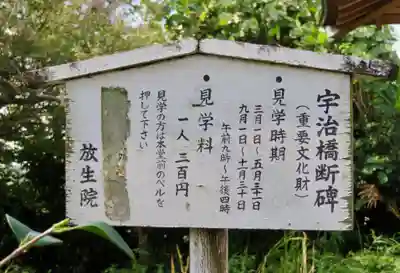 宇治橋断碑
（重要文化財）
・見学時期
三月一日〜五月三十一日
九月一日〜十一月三十日
午前九時〜午後四時
・見学料
一人 三百円
見学の方は本堂前のベルを
押して下さい
放生院